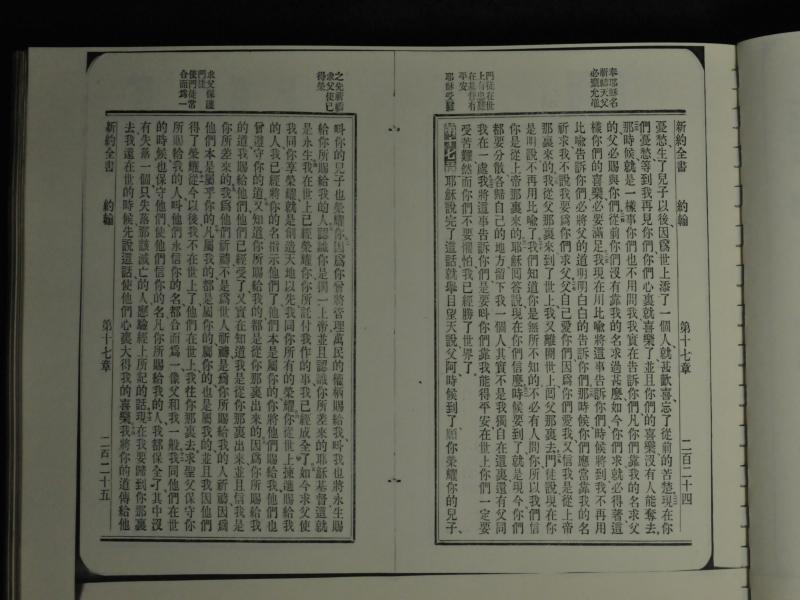 奉耶穌名
祈禱天父
必蒙允准
門徒在世
上有患難
在基督有
平安
耶穌受難
新約全書 約翰 第十七章 二百二十四
憂愁、生了兒子以後、因爲世上添了一個人、就甚歡喜、忘了從前的苦楚、現在你
們憂愁、等到我再見你們、你們心裏就喜樂了、並且你們的喜樂沒有人能奪去、
那時候、就是一樣事、你們也不用問我、我實在告訴你們、凡你們靠我的名求父
的、父必賜與你們、從前你們沒有靠我的名求過甚麽、如今你們求就必得着、這
樣、你們的喜樂必要滿足、我現在用比喩將這事告訴你們、時候將到、我不再用
比喩告訴你們、必將父的道明明白白的告訴你們、那時候、你們應當靠我的名
祈求、我不說我要爲你們求父、父自己愛你們、因爲你們愛我、又信我是從上帝
那裏來的、我從父那裏來到了世上、我又離開世上回父那裏去、門徒說、現在你
是明說、不再用比喩了、我們知道你是無所不知的、不必有人問你、所以我們信
你是從上帝那裏來的、耶穌回答說、現在你們信麽、時候要到了、就是現今、你們
都要分散、各歸自己的地方、留下我一個人、其實不是我獨自在這裏、還有父同
我在一處、我將這事告訴你們、是要叫你們靠我能得平安、在世上你們一定要
受苦難、然而你們不要懼怕、我已經勝了世界了、
第十七章 耶穌說完了這話、就舉目望天說、父阿、時候到了、願你榮耀你的兒子、
之先祈禱
求父使己
得榮
求父保護
門徒
使門徒常
合而爲一
叫你的兒子也榮耀你、因爲你曾將管理萬民的權柄賜給我、叫我也將永生賜
給你所賜給我的人、認識你是獨一上帝、並且認識你所差來的耶穌基督、這就
是永生、我在世上已經榮耀你、你所託付我作的事我已經成全了、如今求父使
我同你享榮耀、就是創造天地以先我同你所有的榮耀、你從世上揀選賜給我
的人、我已經將你的名指示他們了、他們本是屬你的、你將他們賜給我、他們也
曾遵守你的道、又知道你所賜給我的都是從你那裏出來的、因爲你所賜給我
的道、我賜給他們、他們已經受了、又實在知道我是從你那裏出來、並且信我是
你所差來的、我爲他們祈禱、不是爲世人祈禱、是爲你所賜給我的人祈禱、因爲
他們本是屬乎你的、凡屬我的都是屬你的、屬你的也是屬我的、並且我因他們
得了榮耀、從今以後、我不在世上了、他們在世上、我往你那裏去、求聖父保守你
所賜給我的人、叫他們永信你的名、都合而爲一、像父和我一般、我同他們在世
的時候、也保守他們、使他們信你的名、凡你所賜給我的人、我都保全了、其中沒
有失落一個、只失落那該滅亡的人、應驗經上所記的話、現在我要歸到你那裏
去、我還在世的時候、先說這話、使他們心裏大得我的喜樂、我將你的道傳給他
新約全書 約翰 第十七章 二百二十五